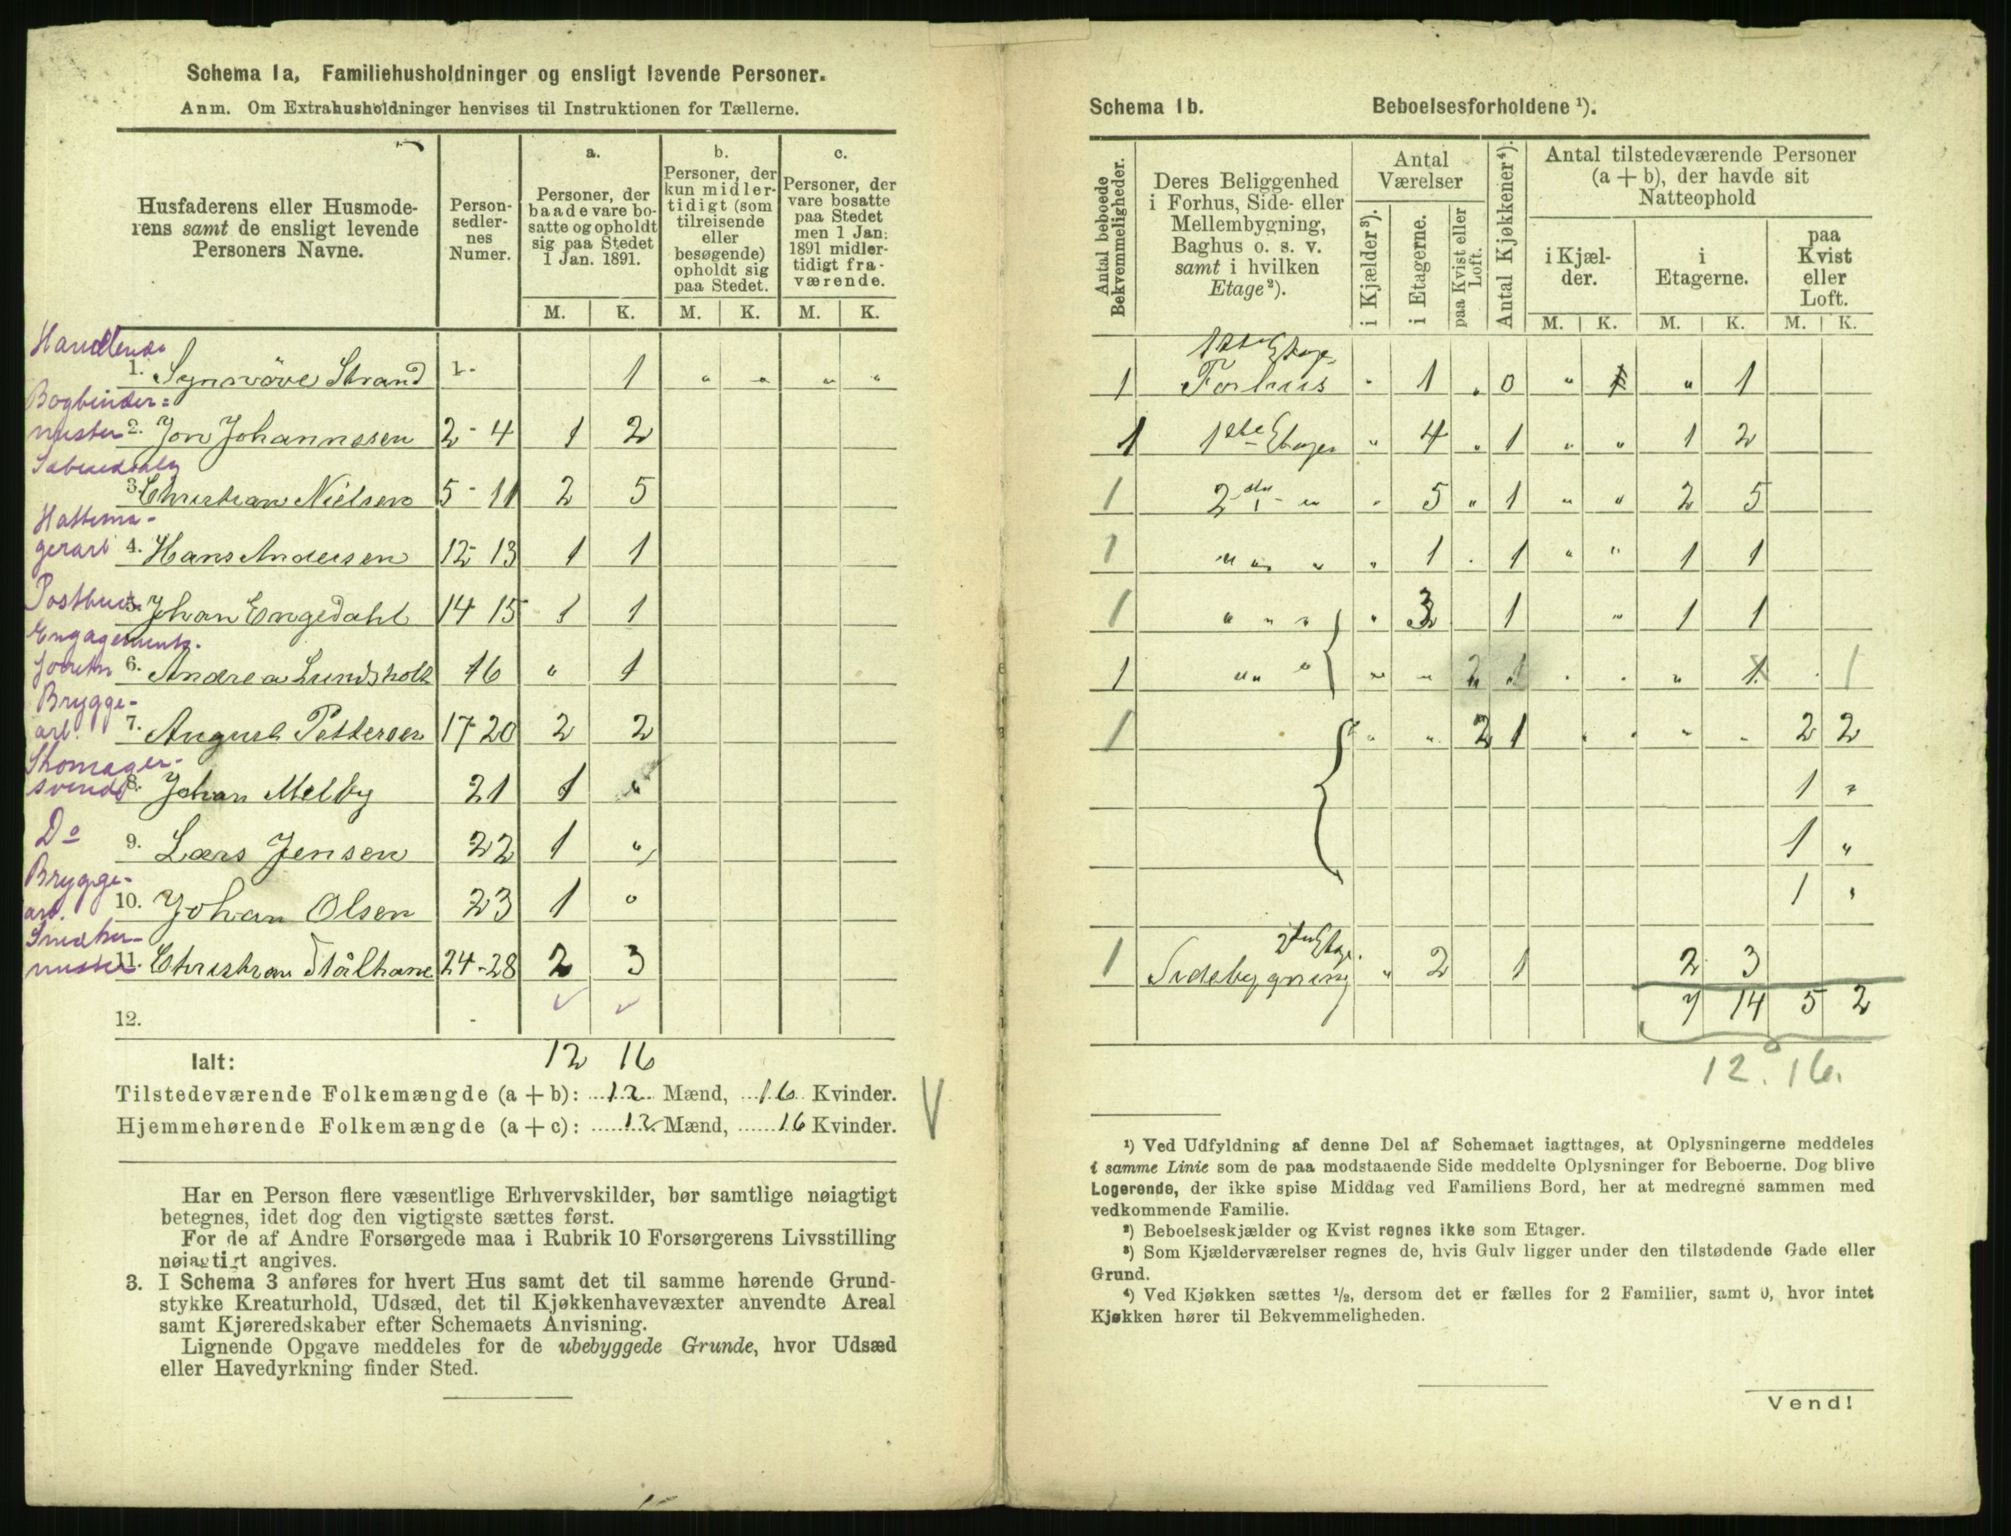 Schema 1a, Familiehusholdninger og ensligt levende Personer.
Anm. Om Extrahusholdninger henvises til Instruktionen for Tællerne.
Husfaderens eller Husmode-
rens samt de ensligt levende
Personers Navne.
Person-
sedler-
nes
Numer.
a.
Personer, der
baade vare bo-
satte og opholdt
sig paa Stedet
1 Jan. 1891.
b.
Personer, der
kun midler-
tidigt (som
tilreisende
eller
besøgende)
opholdt sig
paa Stedet.
c.
Personer, der
vare bosatte
paa Stedet
men 1 Jan.
1891 midler-
tidigt fra-
værende.
M. K. M. K. M. K.
Handlende
1. Synnøve Strand 1- 1 " " " "
Bogbinder=
mester 2. Jon Johannssen 2-4 1 2
3. Christian Nielsen 5-11 2 5
Hattema-
gerarb 4. Hans Andersen 12-13 1 1
Postbud 5. Johan Engedahl 14-15 1 1
Engagements-
6. Andrea Lundsholt 16 " 1
Brygge-
arb. 7. August Pettersen 17-20 2 2
Skomager-
svend 8. Johan Melby 21 1 "
Do 9. Lars Jensen 22 1 "
Brygge-
arb. 10. Johan Olsen 23 1 "
Snedker-
mester 11. Christian Stålhane 24-28 2 3
12.
Ialt: 12 16
Tilstedeværende Folkemængde (a + b): 12 Mænd, 16 Kvinder.
Hjemmehørende Folkemængde (a + c): 12 Mænd, 16 Kvinder.
Har en Person flere væsentlige Erhvervskilder, bør samtlige nøiagtigt
betegnes, idet dog den vigtigste sættes først.
For de af Andre Forsørgede maa i Rubrik 10 Forsørgerens Livsstilling
nøiagtigt angives.
3. I Schema 3 anføres for hvert Hus samt det til samme hørende Grund-
stykke Kreaturhold, Udsæd, det til Kjøkkenhavevæxter anvendte Areal
samt Kjøreredskaber efter Schemaets Anvisning.
Lignende Opgave meddeles for de ubebyggede Grunde, hvor Udsæd
eller Havedyrkning finder Sted.
Schema 1b. Beboelsesforholdene ¹).
Antal beboede
Bekvemmeligheder.
Deres Beliggenhed
i Forhus, Side- eller
Mellembygning,
Baghus o. s. v.
samt i hvilken
Etage²).
Antal
Værelser
i Kjælder³).
i Etagerne.
paa Kvist eller
Loft.
Antal Kjøkkener⁴).
Antal tilstedeværende Personer
(a + b), der havde sit
Natteophold
i Kjæl-
der.
i
Etagerne.
paa
Kvist
eller
Loft.
M. K. M. K. M. K.
1ste Etage
1 Forhus " 1 " 0 " 1 " 1
1 1ste Etage " 4 " 1 " " 1 2
1 2den " " 5 " 1 " " 2 5
1 " " " " 1 . 1 " " 1 1
1 " " " " 3 1 " 1 1
1 " " " " " 2 1 . . " 1 . 1
1 " " 2 1 . . " " 2 2
1 "
1 "
1 "
2den Etage.
1 Sidebygning " 2 1 2 3
7 14 5 2
12. 16.
¹) Ved Udfyldning af denne Del af Schemaet iagttages, at Oplysningerne meddeles
i samme Linie som de paa modstaaende Side meddelte Oplysninger for Beboerne. Dog blive
Logerende, der ikke spise Middag ved Familiens Bord, her at medregne sammen med
vedkommende Familie.
²) Beboelseskjælder og Kvist regnes ikke som Etager.
³) Som Kjælderværelser regnes de, hvis Gulv ligger under den tilstødende Gade eller
Grund.
⁴) Ved Kjøkken sættes ½, dersom det er fælles for 2 Familier, samt 0, hvor intet
Kjøkken hører til Bekvemmeligheden.
Vend!